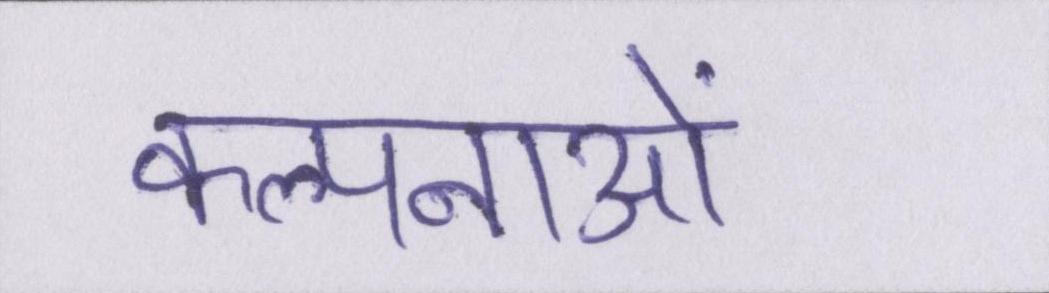 कल्पनाओं